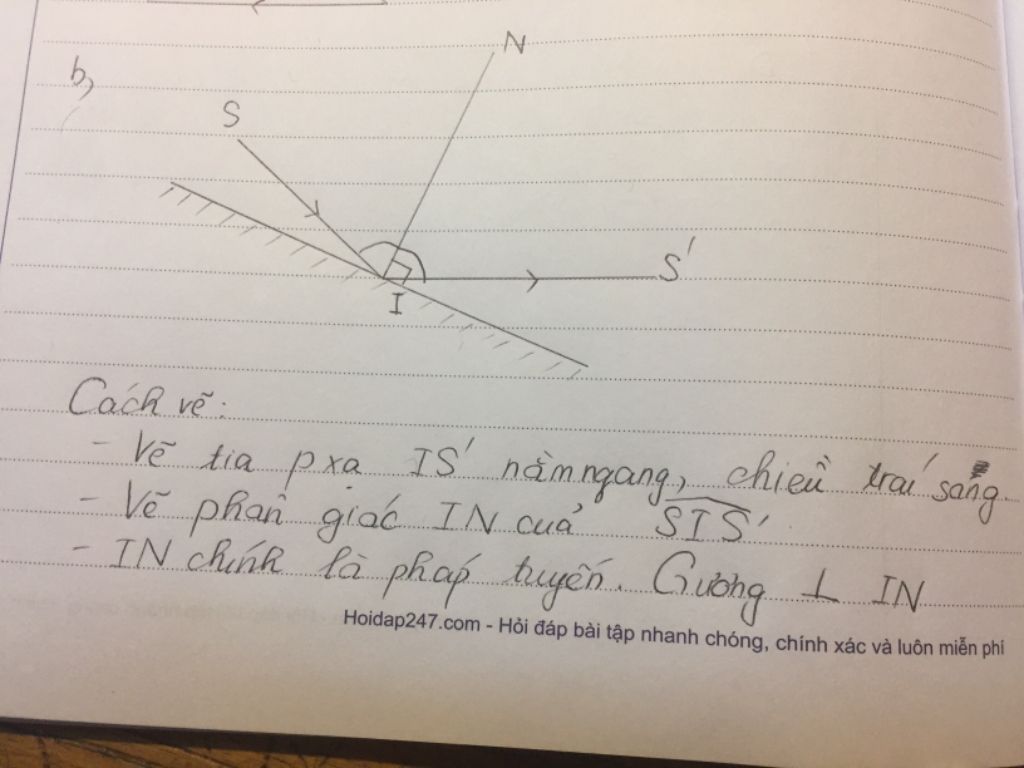 b,
N
S
S'
I
Cách vẽ:
- Vẽ tia pxạ IS' nằm ngang, chiều trái sang
- Vẽ phân giác IN của SIS'
- IN chính là pháp tuyến. Gương ⊥ IN
Hoidap247.com - Hỏi đáp bài tập nhanh chóng, chính xác và luôn miễn phí